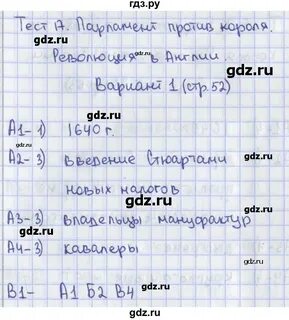 гдз.ру
Тест 17. Парламент против короля.
Революция в Англии.
Вариант 1 (стр. 52)
А1- 1) 1640 г.
А2- 3) введение Стюартами
новых налогов
А3- 3) владельцы мануфактур
А4- 3) кавалеры
В1- А1 Б2 В4
gdz.ru
gdz.ru
gdz.ru
gdz.ru
gdz.ru
gdz.ru
gdz.ru
gdz.ru